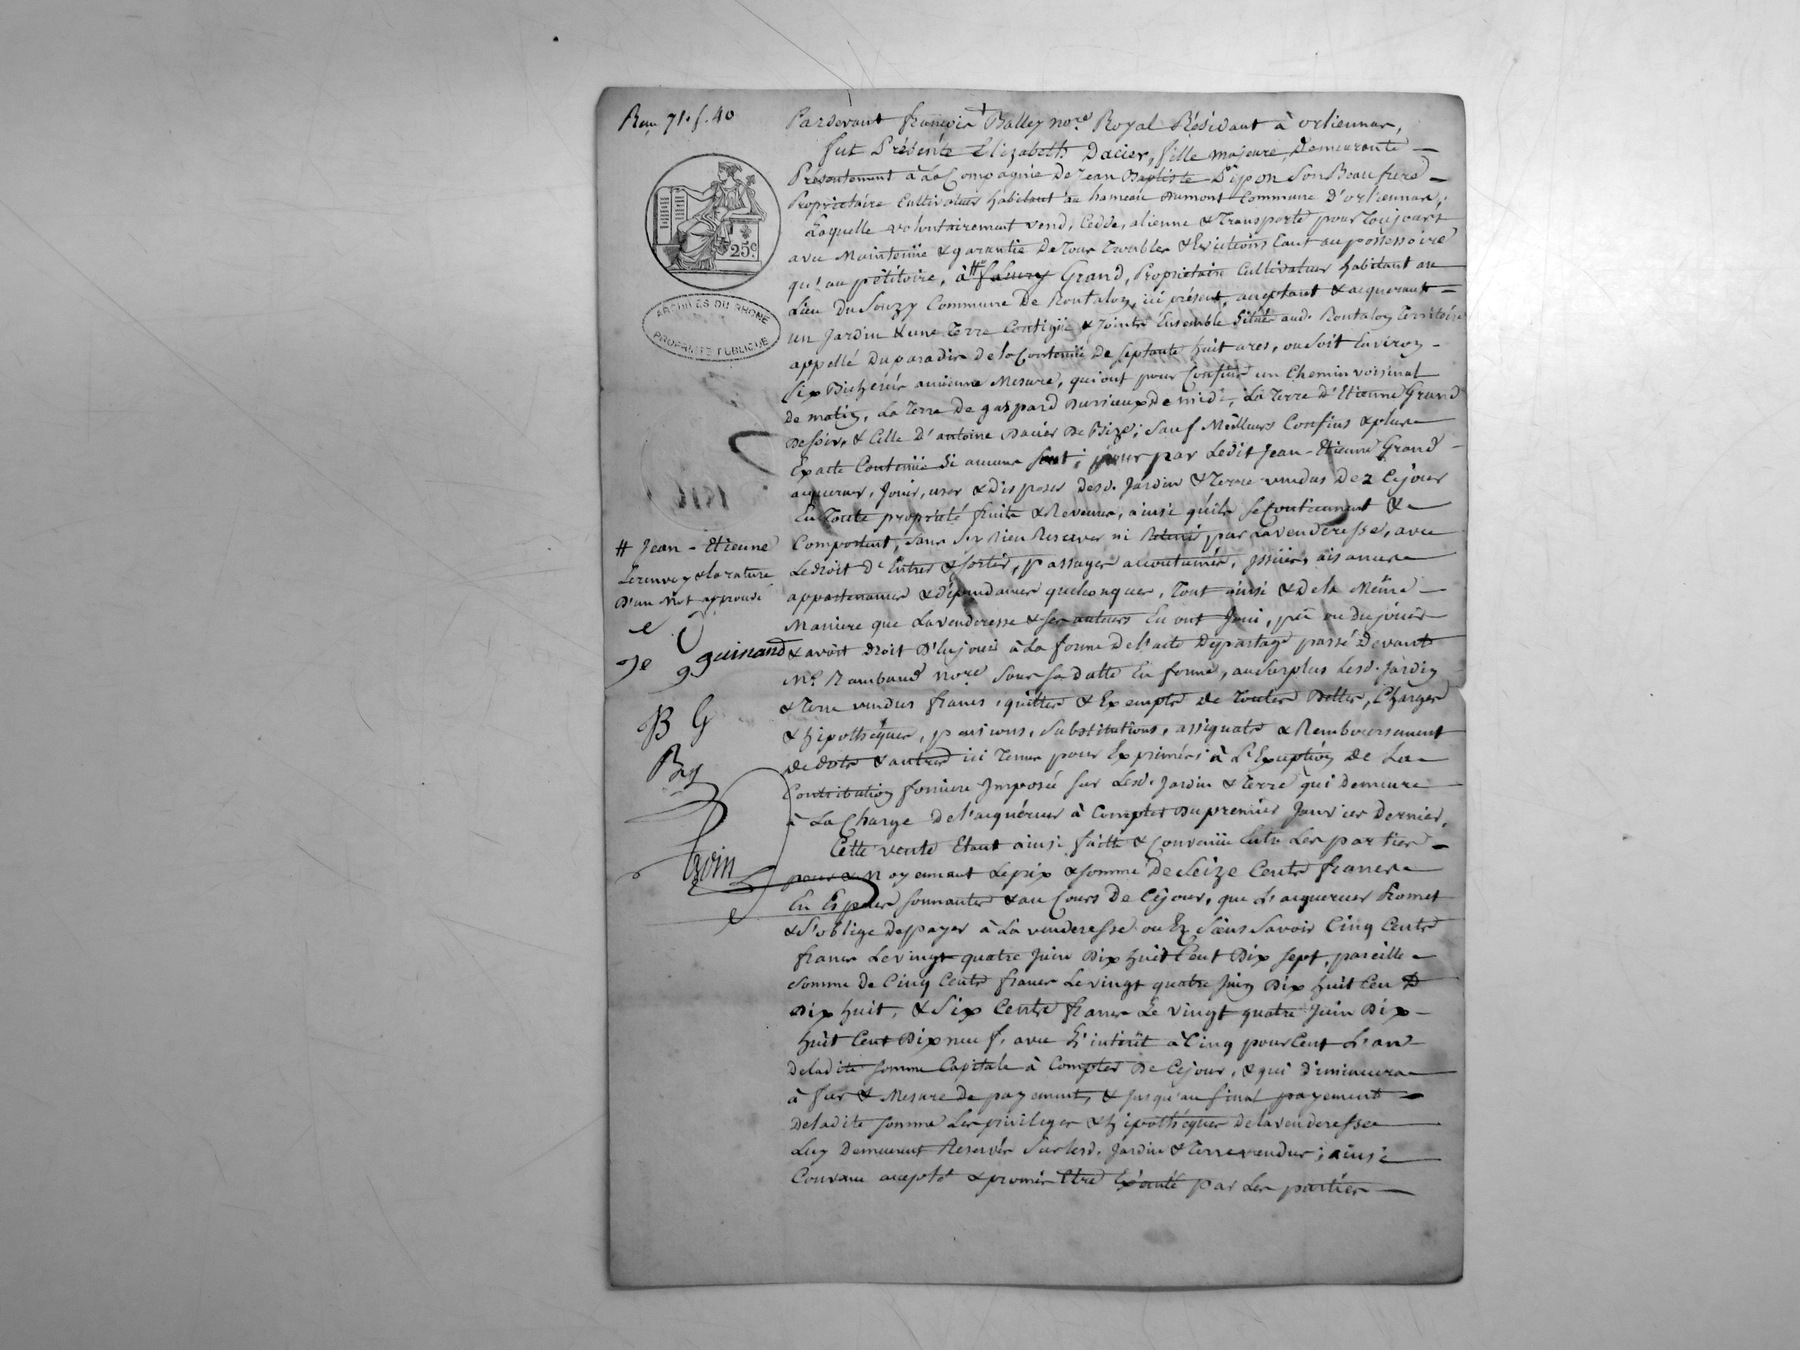 Reçu 71. f. 40
25c.
ARCHIVES DU RHONE
PROPRIÉTÉ PUBLIQUE
Pardevant françois Balley no.re Royal Résidant à orliennas,
fut Présente Elizabeth Dacier, fille majeure, Demeurante
Présentement à la Compagnie de Jean Baptiste Pipon Son Beau frere
Propriétaire Cultivateur habitant au hameau Dumont Commune D'orliennas;
Laquelle volontairement vend, Cedde, aliene & Transporte pour Toujours
avec Maintenüe & garantie De Tous Troubles & Evictions tant au possessoire
qu'au pétitoire, à # Grand, Proprietaire Cultivateur habitant au
Lieu Du Souzy Commune De Rontalon, ici présent, aceptant & acquerant
un Jardin & une Terre Contigüe & Joints Ensemble Situés aud. Rontalon Territoire
appellé Du paradis de la Contenüe de septante huit ares, ou soit Environ
Six Bicherées ancienne Mesure, qui ont pour Confins un Chemin voisinal
de matin, La Terre de gaspard Durieux De midi, La Terre d'Etienne Grand
De soir, & Celle d'antoine Dacier De Bize; Sauf Meilleurs Confins & plus
Exacte Contenüe si aucuns sont; pour par Ledit Jean-Etienne Grand
acquereur, Jouir, user & disposer desd. Jardin & Terre vendus Dez Cejour
En Toute propriété fruits & Revenus, ainsi qu'ils se Contiennent &
Comportent, sans s'y Rien Reserver ni Retenir par La venderesse, avec
Le droit d'Entrer & sortir, passages accoutumés, aisances
appartenances & dépendances quelconques, Tout ainsi & de la Même
Maniere que La venderesse & ses auteurs En ont Joui, pü ou du jouir
& avoit droit D'En jouir à La forme de l'acte De partage passé Devant
Me. Rambaud no.re Sous sa datte En forme, au surplus Lesd. Jardin
& Terre vendus francs, quittes & Exempts de Toutes Dettes, Charges
& hipotheques, pensions, substitutions, assignats & Remboursement
de dots & autres ici Tenus pour Exprimés à L'Exception de La
Contribution fonciere Imposée sur Lesd. Jardin & Terre qui Demeure
à La Charge de l'acquéreur à Compter Du premier Janvier Dernier.
Cette vente Etant ainsi faite & Convenüe Entre Les parties
Moyennant Le prix & somme de Seize Cents francs
En Espèces sonnantes & au Cours De Cejour, que L'acquereur Promet
& s'oblige De payer à La venderesse ou Ez Siens Savoir Cinq Cents
francs Le vingt quatre Juin Dix huit Cent Dix sept, pareille
Somme de Cinq Cents francs Le vingt quatre Juin Dix huit Cent
Dix huit, & Six Cents francs Le vingt quatre Juin Dix
huit Cent Dix neuf, avec L'intérêt à Cinq pour Cent L'an
deladite somme Capitale à Compter De Cejour, & qui diminuera
à fur & Mesure de payement, & Jusqu'au final payement
Deladite somme Les privileges & hipothéques De la venderesse
Luy Demeurent Reservés Sur Lesd. Jardin & Terre vendus; ainsi
Convenu accepté & promis Etre Exécuté par Les parties
# Jean-Etienne
Le renvoy & la rature
D'un Mot approuvé
guinand
B G